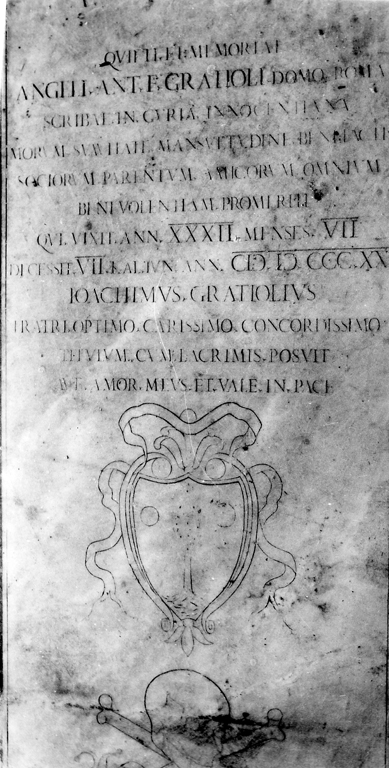 QVIETI. ET. MEMORIAE
ANGELI. ANT. F. GRATIOLI. DOMO. ROMA
SCRIBAE. IN. CVRIA. INNOCENTIANA
MORVM. SVAVITATE. MANSVETVDINE. BENEFACTI
SOCIORVM. PARENTVM. AMICORVM. OMNIVM
BENEVOLENTIAM. PROMERITI
QVI. VIXIT. ANN. XXXII. MENSES. VII
DECESSIT. VII. KAL. IVN. ANN. CIƆ. IƆ. CCC. XX
IOACHIMVS. GRATIOLIVS
FRATRI. OPTIMO. CARISSIMO. CONCORDISSIMO
TITVLVM. CVM. LACRIMIS. POSVIT
AVE. AMOR. MEVS. ET. VALE. IN. PACE